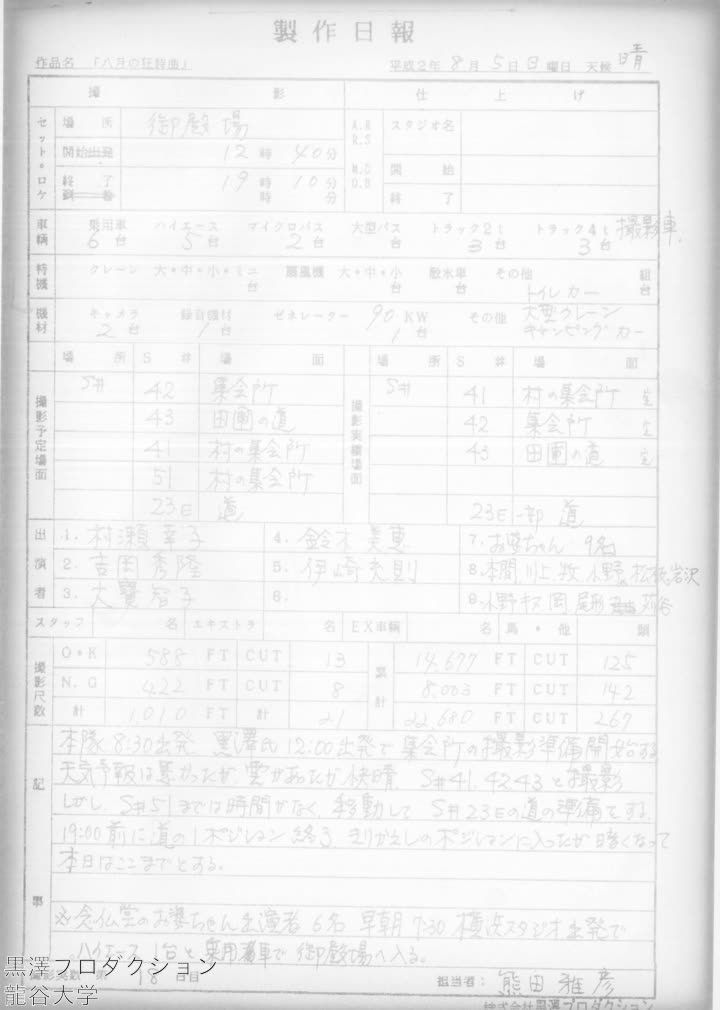 製作日報
作品名 「八月の狂詩曲」 平成2年 8月 5日 日 曜日 天候 晴
撮影 仕上げ
セット・ロケ 場所 御殿場 A.R R.S スタジオ名
開始出発 12時 40分 M.C D.B 開始
終了 19時 10分 終了
時 分
車輌 乗用車 6台 ハイエース 5台 マイクロバス 2台 大型バス 台 トラック2t 3台 トラック4t 3台 撮影車
特機 クレーン 大・中・小・ミニ 台 扇風機 大・中・小 台 散水車 台 その他 トイレカー 組台
機材 キャメラ 2台 録音機材 1台 ゼネレーター 90KW 1台 その他 大型クレーン キャンピングカー
場所 S# 場面 場所 S# 場面
撮影予定場面 撮影実績場面
S# 42 集会所 S# 41 村の集会所
43 田圃の道 42 集会所
41 村の集会所 43 田圃の道
51 村の集会所
23E 道 23E一部 道
出演者
1. 村瀬幸子 4. 鈴木美恵 7. お婆ちゃん 9名
2. 吉岡秀隆 5. 伊崎充則 8. 本間 川上 牧 水野 松 岩沢
3. 大寶智子 6. 9. 水野 岡 尾形 刈谷
スタッフ 名 エキストラ 名 EX車輌 名 馬・他 頭
撮影尺数 累計
O・K 588 FT CUT 13 14,677 FT CUT 125
N.G 422 FT CUT 8 8,003 FT CUT 142
計 1,010 FT 計 21 22,680 FT CUT 267
記事
本隊 8:30出発 黒澤氏 12:00出発で集会所の撮影準備開始する
天気予報は悪かったが、雲があったが快晴、S#41,42,43と撮影
しかし、S#51までは時間がなく、移動して、S#23Eの道の準備をする、
19:00前に道の1ポジション終了、きりかえしのポジションに入ったが暗くなって
本日はここまでとする。
※念仏堂のお婆ちゃん出演者 6名 早朝 7:30 横浜スタジオ出発で
ハイエース 1台と乗用車で御殿場へ入る。
撮影実数 18日目 担当者: 熊田雅彦
株式会社黒澤プロダクション
黒澤プロダクション
龍谷大学